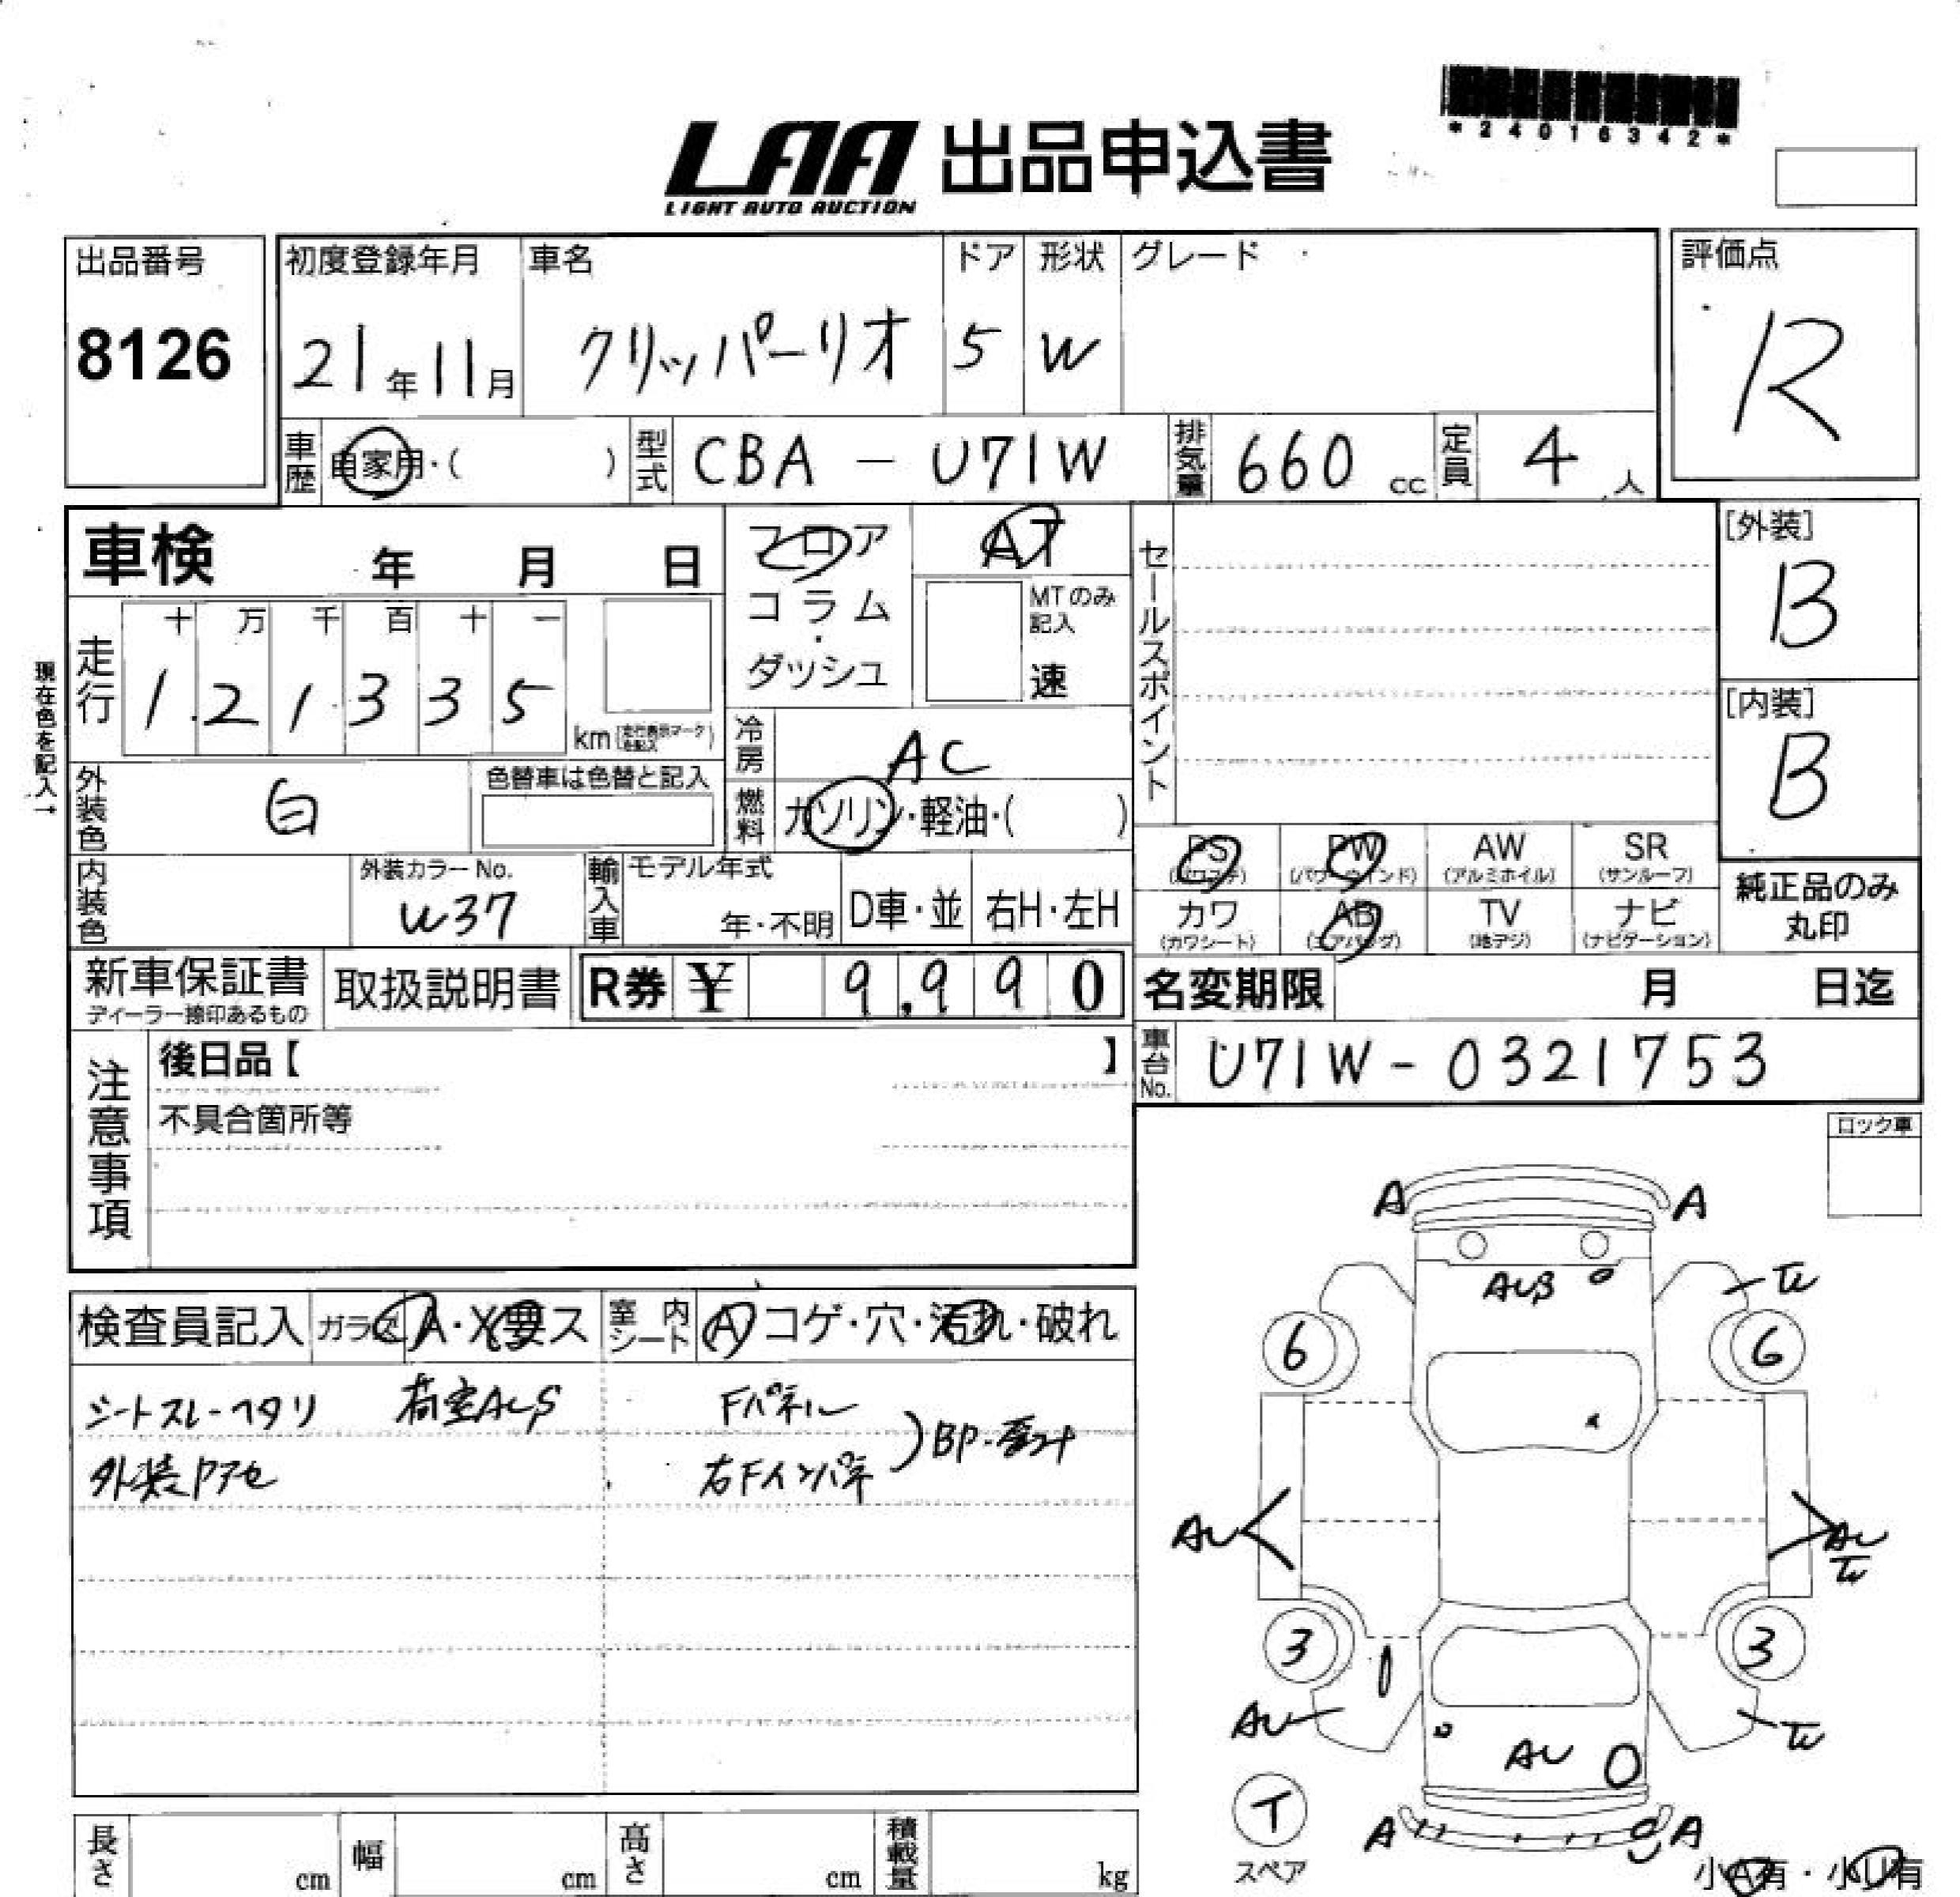 *24016342*
LAA 出品申込書
LIGHT AUTO AUCTION
出品番号
8126
初度登録年月
21年11月
車名
クリッパーリオ
ドア
5
形状
W
グレード
評価点
R
車歴 自家用・( )
型式 CBA - U71W
排気量 660 cc
定員 4 人
車検 年 月 日
フロア
コラム
・
ダッシュ
AT
MTのみ
記入
速
セールスポイント
[外装]
B
[内装]
B
現在色を記入→
走行
十 万 千 百 十 一
1 2 1 3 3 5
km
冷房 AC
燃料 ガソリン・軽油・( )
外装色 白
色替車は色替と記入
内装色
外装カラーNo.
W37
輸入車
モデル年式
年・不明
D車・並
右H・左H
PS PW AW SR
(パワステ) (パワーウインド) (アルミホイル) (サンルーフ)
カワ AB TV ナビ
(カワシート) (エアバッグ) (地デジ) (ナビゲーション)
純正品のみ
丸印
新車保証書
ディーラー捺印あるもの
取扱説明書
R券 ¥ 9,990
名変期限 月 日迄
車台No. U71W-0321753
注意事項
後日品【 】
不具合箇所等
ロック車
検査員記入
ガラス A・X要ス
室内シート
A コゲ・穴・汚れ・破れ
シートスレ・ヘタリ 荷室AUS
Fパネル
外装Pアセ
右Fインパネ
A A
6 6
AU
3 3
AU
AU
A A
T
スペア
小A有・小U有
長さ cm
幅 cm
高さ cm
積載量 kg